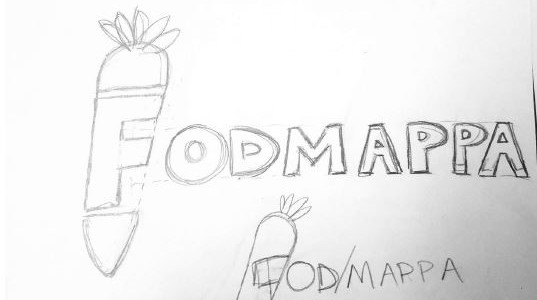 FODMAPPA
FOD/MAPPA